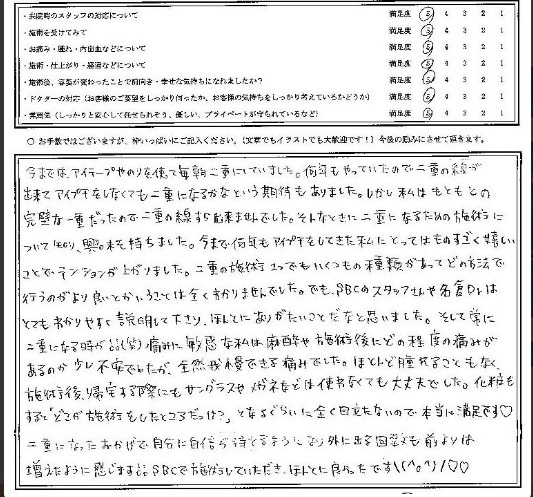 ・来院時のスタッフの対応について 満足度 5 4 3 2 1
・施術を受けてみて 満足度 5 4 3 2 1
・お痛み・腫れ・内出血などについて 満足度 5 4 3 2 1
・施術・仕上がり・経過などについて 満足度 5 4 3 2 1
・施術後、容姿が変わったことで前向き・幸せな気持ちになれましたか? 満足度 5 4 3 2 1
・ドクターの対応(お客様のご要望をしっかり伺ったか、お客様の気持ちをしっかり考えているかどうか) 満足度 5 4 3 2 1
・雰囲気(しっかりと安心して任せられそう、優しい、プライベートが守られているなど) 満足度 5 4 3 2 1
○ お手数ではございますが、枠いっぱいにご記入ください。(文章でもイラストでも大歓迎です!)今後の励みにさせて頂きます。
今までは、アイテープやのりを使って毎朝二重にしていました。何年もやっていたので二重の線が
出来てアイプチをしなくても二重になるかなという期待もありました。しかし私はもともとの
完璧な一重だったので二重の線すら出来ませんでした。そんなときに二重になるための施術に
ついて知り、興味を持ちました。今まで何年もアイプチをしてきた私にとってはものすごく嬉しい
ことでテンションが上がりました。二重の施術1つでもいくつもの種類があってどの方法で
行うのがより良いとかいうことは全くわかりませんでした。でも、SBCのスタッフさんや名倉Drは
とてもわかりやすく説明して下さり、ほんとにありがたいことだなと思いました。そして常に
二重になる時が(笑)痛みに敏感な私は麻酔や施術後にどの程度の痛みが
あるのか少し不安でしたが、全然我慢できる痛みでした。ほとんど腫れることもなく、
施術後、帰宅する際にもサングラスやメガネなどは使わなくても大丈夫でした。化粧も
すると「どこが施術をしたところだっけ?」となるぐらいに全く目立たないので本当に満足です♡
二重になったおかげで自分に自信が持てるようになり外に出る回数も前よりは
増えたように感じます。SBCで施術していただき、ほんとに良かったです\(^o^)/♡♡